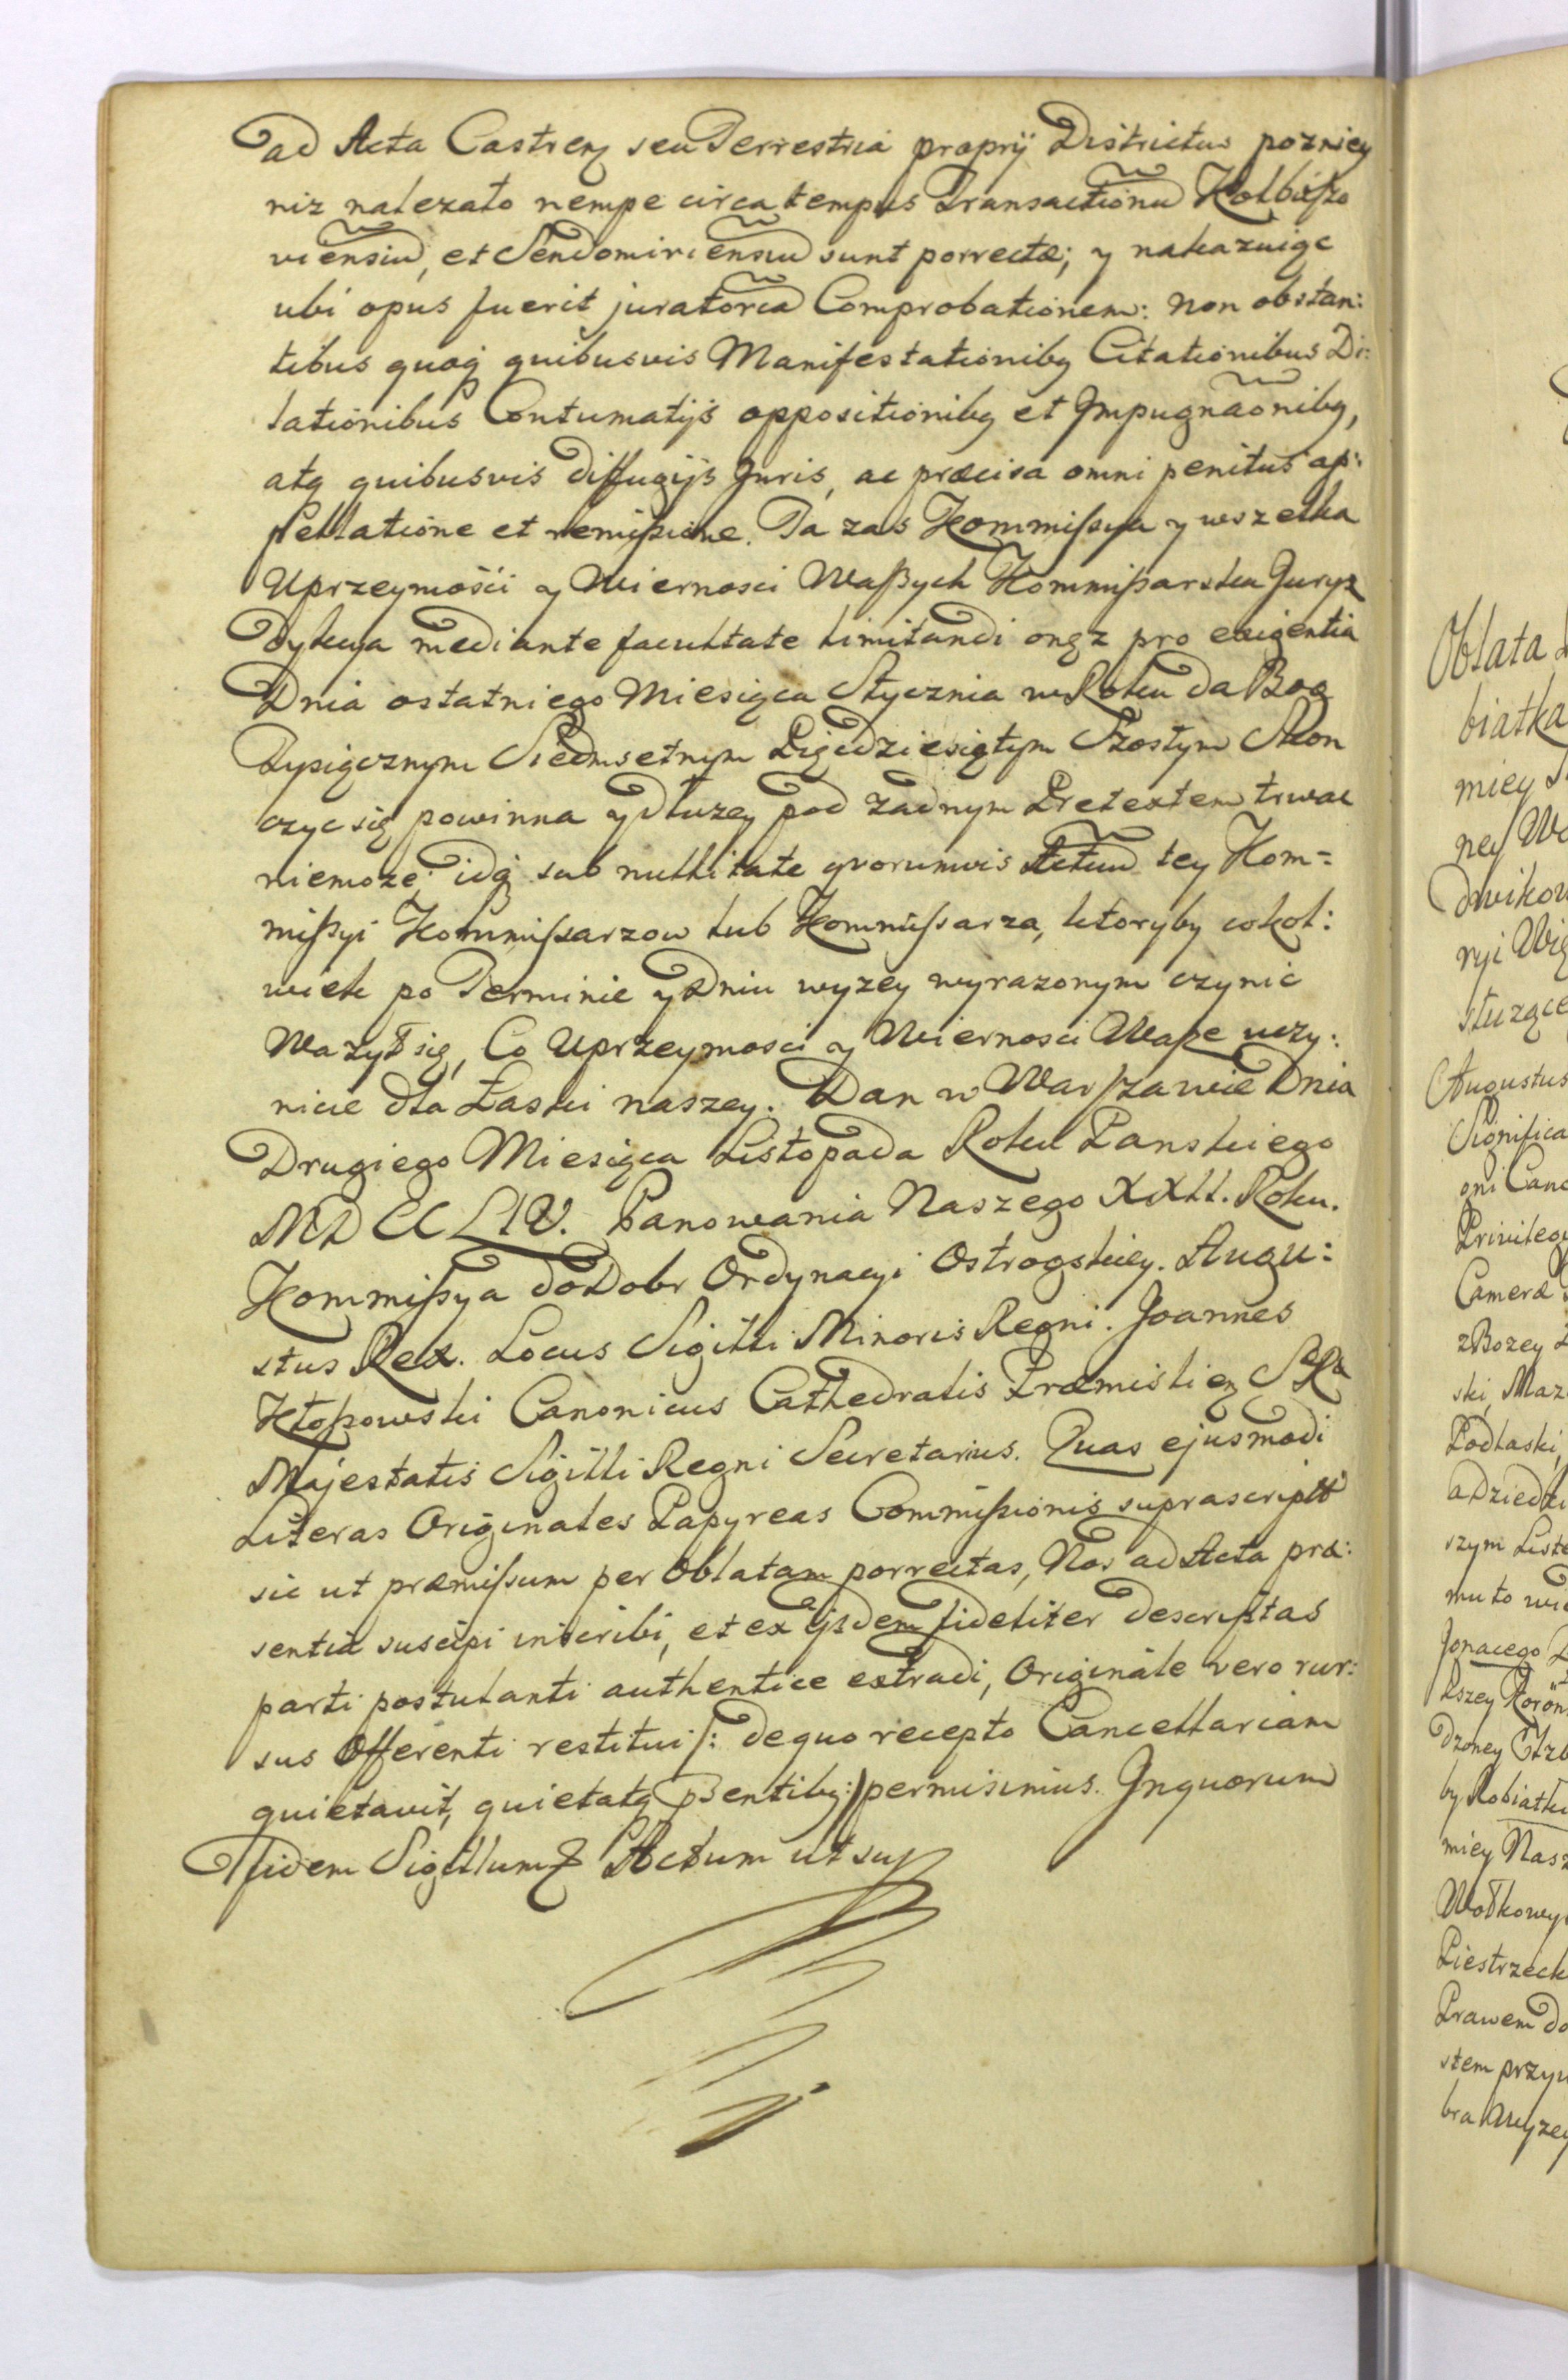 ad Acta Castren seu Terrestria proprÿ Districtus poznieÿ
niz nalezało nempe circa tempus Transactionū Kolbuſzo
viensiū, et Sendomiriensiū sunt porrectæ; y nakazuiąc
ubi opus fuerit juratoriā Comprobationem: non obstan:
tibus quoq quibusvis Manifestationibq Citationibus Di:
lationibus Contumatijs oppositionibq et Impugnaōnibq,
atq quibusvis diffugijs Juris, ac præcisa omni penitus ap:
pellatione et remiſsione. Ta zas Kommiſsya y wszelka
Uprzeymości y Wiernosci Waſzych Kommiſsarska Juryz
dykcya mediante facultate limitandi onęz pro exigentia
Dnia ostatniego Miesiąca Stycznia w Roku da Bog
Tysiącznym Siedmsetnym Pięcdziesiątym Szostym Skon
czyc się powinna y dłuzey pod zadnym Pretextem trwac
niemoze; idq sub nullitate qvorumvis Actuū tey Kom=
miſsyi Kommiſsarzow lub Kommiſsarza, ktoryby cokol:
wiek po Terminie y Dniu wyzey wyrazonym czynić
Wazył się, Co Uprzeymosci y Wiernosci Waſze uczy:
nicie dla Łaski naszey. Dan w Warſzawie Dnia
Drugiego Miesiąca Listopada Roku Panskiego
MDCCLIV. Panowania Naszego XXII. Roku.
Kommiſsya do Dobr Ordynacyi Ostrogskiey. Augu:
stus Rex. Locus Sigilli Minoris Regni. Joannes
Kłoſsowski Canonicus Cathedralis Præmislien S R
Majestatis Sigilli Regni Secretarius. Quas ejusmodi
Literas Originales Papyreas Commiſsionis suprascriptt
sic ut præmiſsum per Oblatam porrectas, Nos ad Acta præ:
sentia suscipi inscribi, et ex ijsdem fideliter descriptas
parti postulanti authentice extradi, Originale vero rur:
sus Offerenti restitui /: de quo recepto Cancellariam
quietavit, quietatq psentibq :/ permisimus. In quorum
fidem Sigillum Actum ut sup
Oblata
biatka
miey
ney
dwikow
ryi
służące
Augustus
Significa
gni Canc
Privileg
Cameræ
z Bozey
ski, Maz
Podlaski,
a Dziedzi
szym Liste
mu to
Jgnacego
kszey Koron
dzoney
by Kobiatki
miey Nasz
Wołkowy
Piestrzeck
Prawem do
stem przyn
bra Wyzey